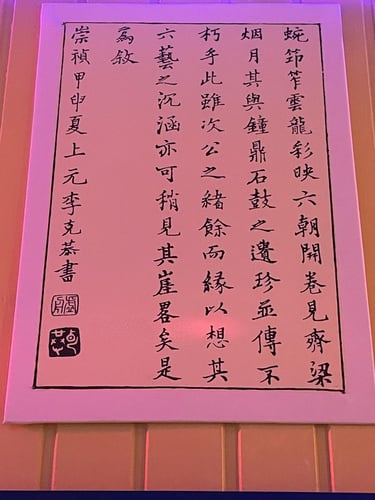 蜿筇笮雲龍彩映六朝開卷見齊梁
烟月其與鐘鼎石鼓之遺珍並傳不
朽乎此雖次公之緒餘而緣以想其
六藝之沉涵亦可稍見其崖畧矣是
為敘
崇禎甲申夏上元李克恭書